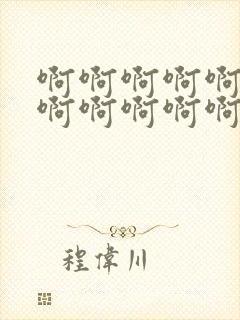 啊啊啊啊啊
啊啊啊啊啊
程偉川